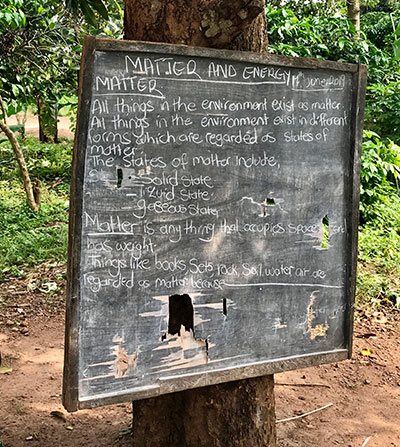 MATTER AND ENERGY 19th June 2019
MATTER
All things in the environment exist as matter.
All things in the environment exist in different
forms which are regarded as states of
matter.
The states of matter include;
solid state
liquid state
gaseous state,
Matter is any thing that occupies space and
has weight.
Things like books, Sets, rock, Soil, water air are
regarded as matter because